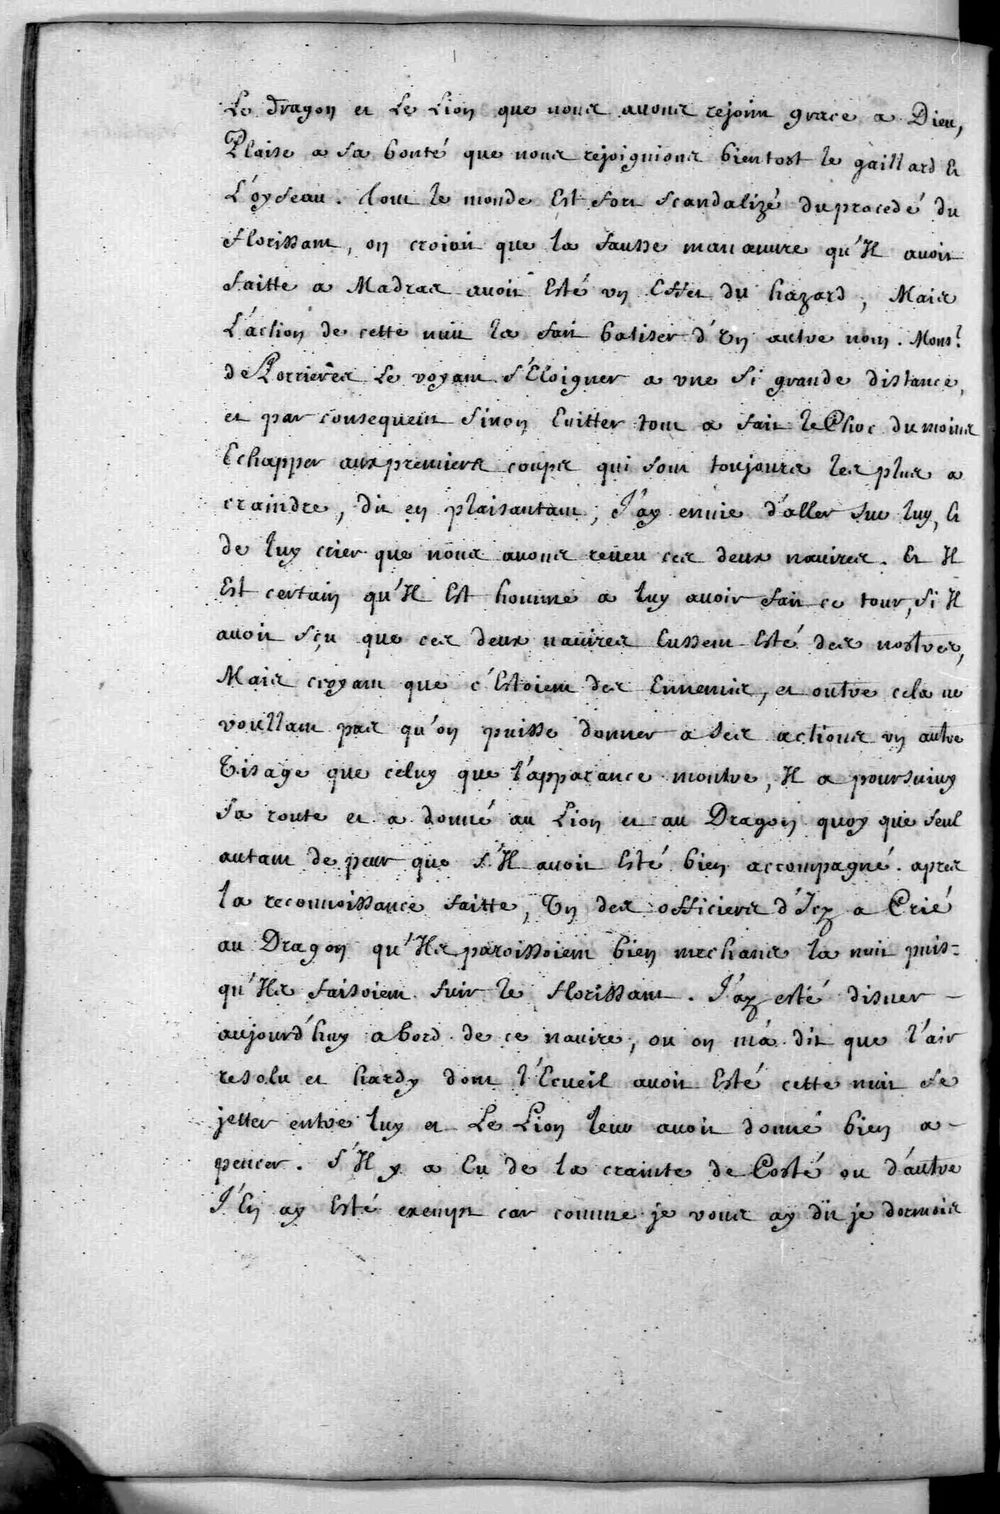 Le Dragon et Le Lion que nous avons rejoint grace a Dieu,
Plaise a sa bonté que nous rejoignions bientost le gaillard Et
L'oyseau. Tout le monde Est fort scandalizé du procedé du
florissant, on croioit que la fausse manœuvre qu'Il avoit
faitte a Madras avoit Esté un Effet du hazard, Mais
L'action de cette nuit la fait batiser d'Un autre nom. Mons.r
de Porrieres Le voyant s'Eloigner a une si grande distance,
et par consequent sinon Eviter tout a fait le Choc du moins
Echapper aux premiers coups qui sont toujours les plus a
craindre, dit en plaisantant, J'ay envie d'aller sur luy, Et
de luy crier que nous avons reveu ces deux navires. Et Il
Est certain qu'Il Est homme a luy avoir fait ce tour, si Il
avoit sçu que ces deux navires Eussent Esté des nostres,
Mais croyant que c'Estoient des Ennemis, et outre cela ne
voullant pas qu'on puisse donner a ses actions un autre
Visage que celuy que l'apparance montre, Il a poursuivy
sa route et a donné au Lion et au Dragon quoy que seul
autant de peur que s'Il avoit Esté bien accompagné. apres
la reconnoissance faitte, Un des officiers d'Icy a Crié
au Dragon qu'Ils paroissoient bien mechans la nuit puis-
qu'Ils faisoient fuir le florissant. J'ay esté disner -
aujourd'huy a bord de ce navire, ou on m'a dit que l'air
resolu et hardy dont l'Ecueil avoit Esté cette nuit se
jetter entre luy et Le Lion leur avoit donné bien a -
penser. S'Il y a Eu de la crainte de Costé ou d'autre
J'En ay Esté exempt car comme je vous ay dit je dormois